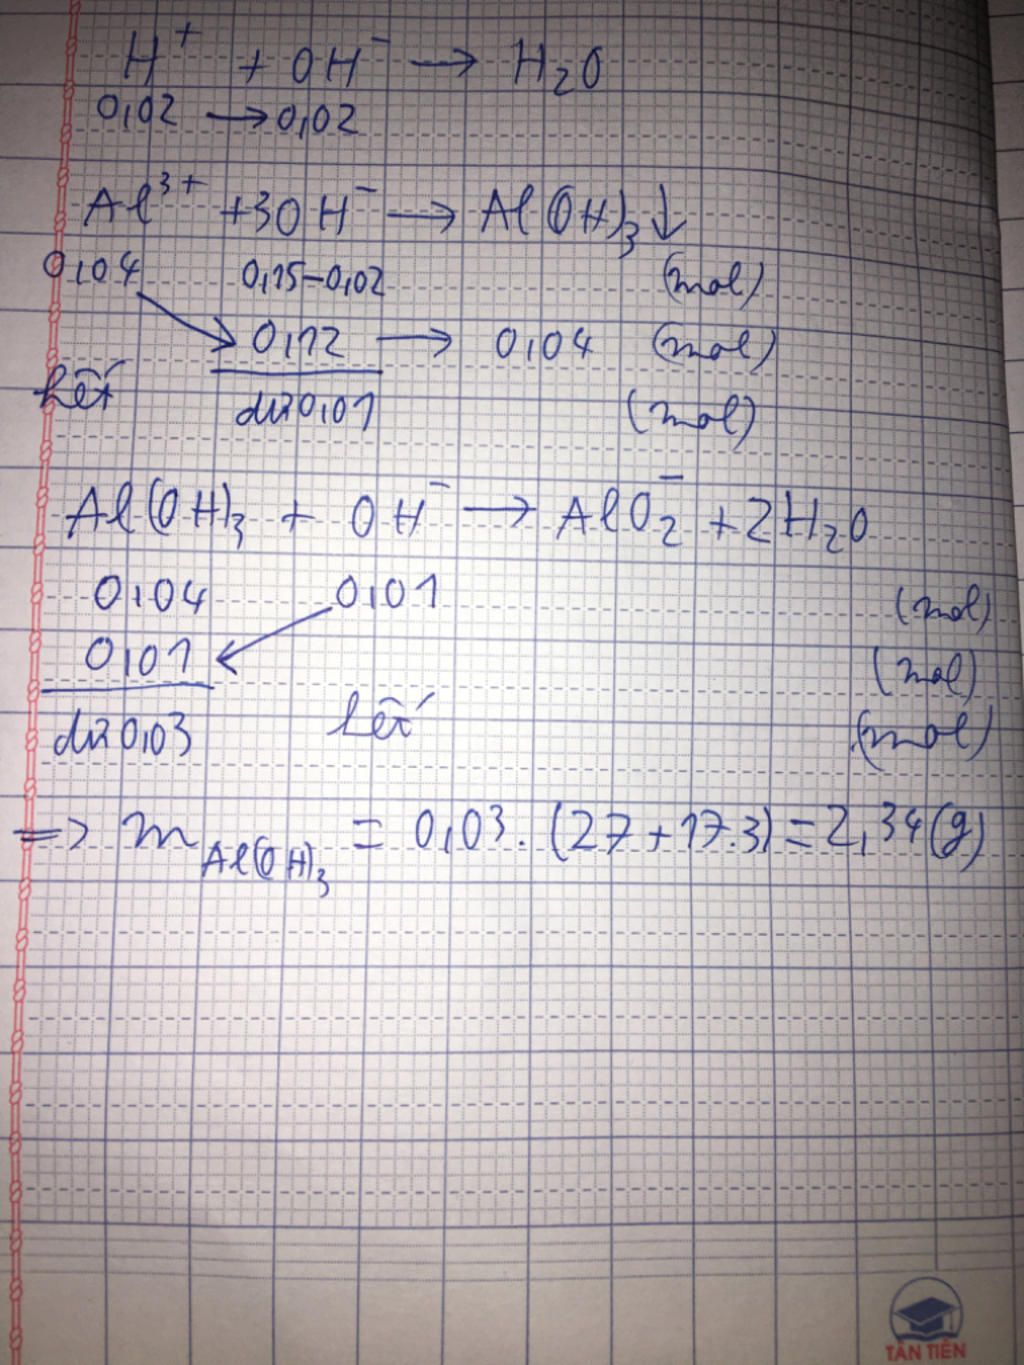 H⁺ + OH⁻ → H₂O
0,02 → 0,02
Al³⁺ + 3OH⁻ → Al(OH)₃↓
0,04 0,15-0,02 (mol)
0,12 → 0,04 (mol)
hết dư 0,01 (mol)
Al(OH)₃ + OH⁻ → AlO₂⁻ + 2H₂O
0,04 0,01 (mol)
0,01 (mol)
dư 0,03 hết (mol)
=> m Al(OH)₃ = 0,03.(27+17.3)=2,34(g)
TÂN TIẾN